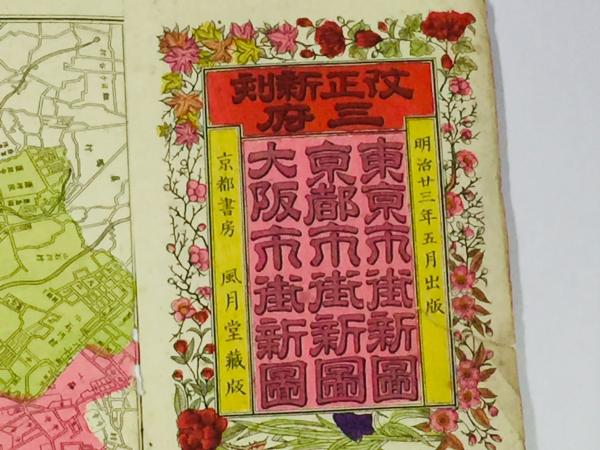 改正新刻
三府
明治廿三年五月出版
東京市街新圖
京都市街新圖
大阪市街新圖
京都書房 風月堂藏版